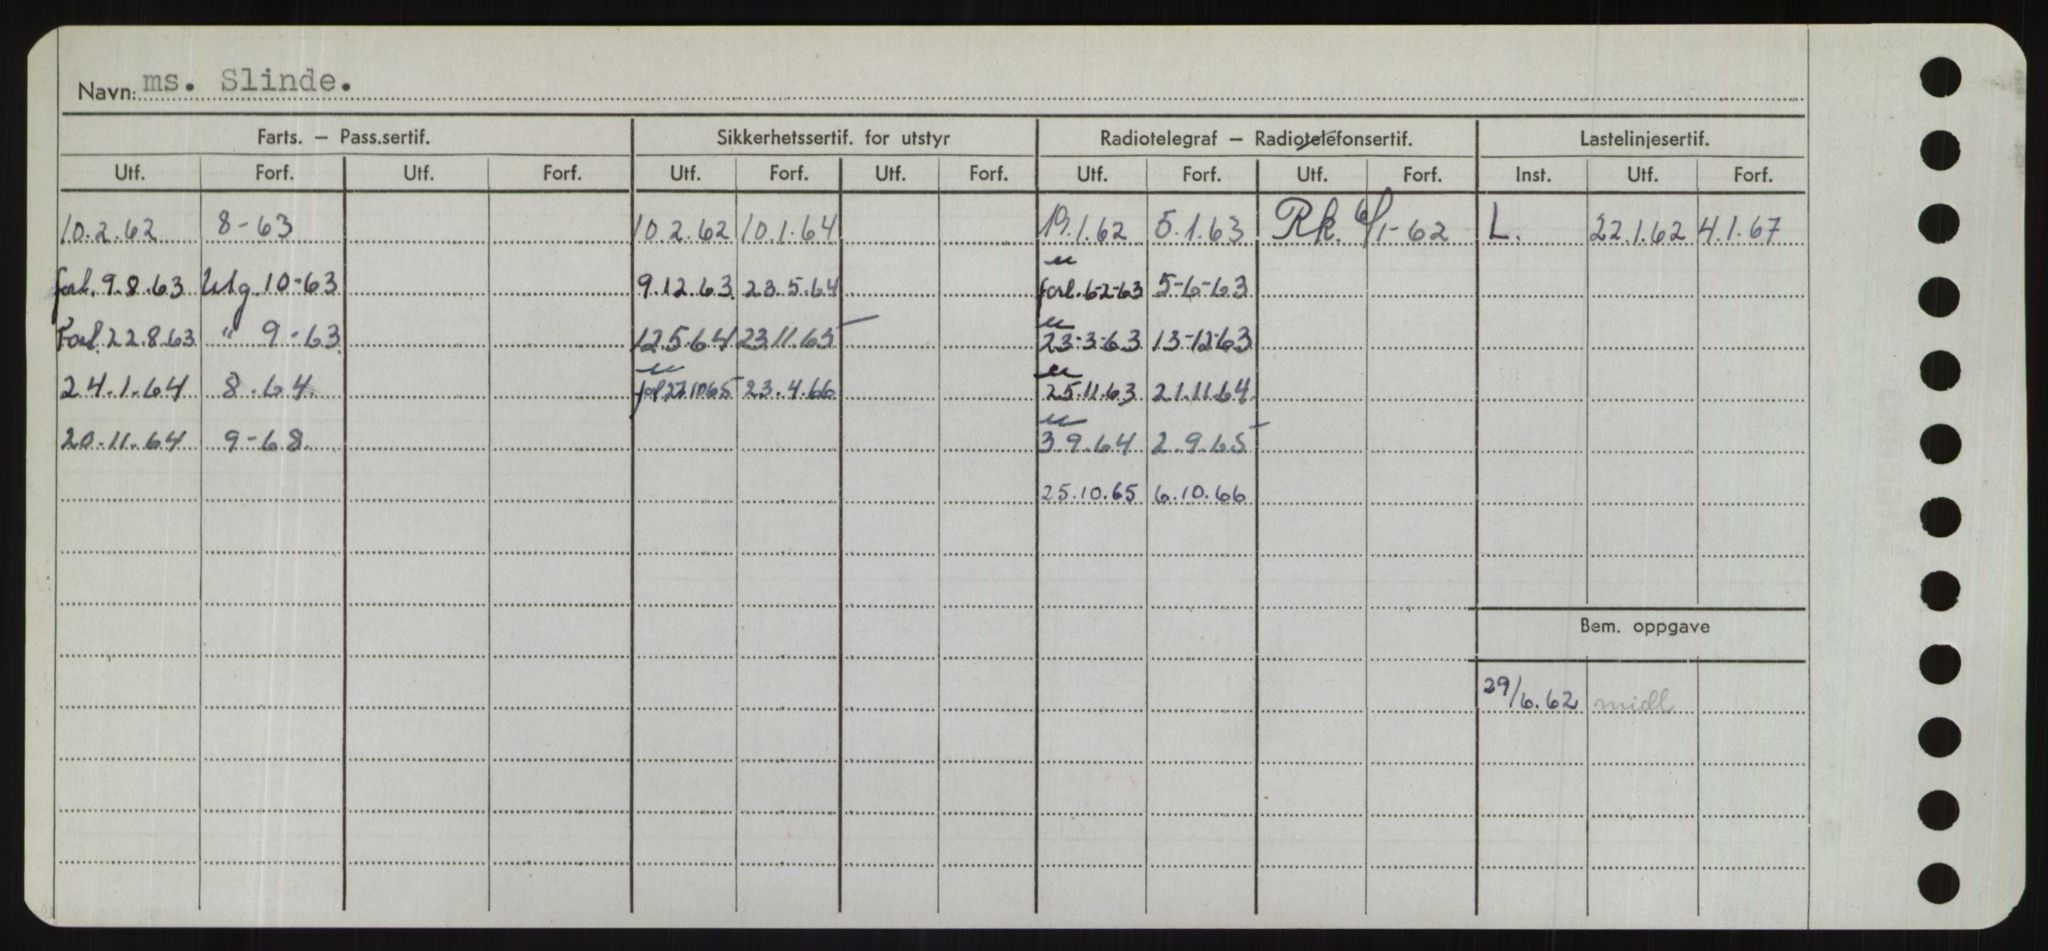 Navn: ms. Slinde.
Farts. — Pass.sertif. Sikkerhetssertif. for utstyr Radiotelegraf — Radiotelefonsertif. Lastelinjesertif.
Utf. Forf. Utf. Forf. Utf. Forf. Utf. Forf. Utf. Forf. Utf. Forf. Inst. Utf. Forf.
10.2.62 8-63 10.2.62 10.1.64 19.1.62 5.1.63 Rk. 6/1-62 L. 22.1.62 4.1.67
forl. 9.8.63 Utg 10-63 9.12.63 23.5.64 forl. 6-2-63 5-6-63
Forl. 22.8.63 " 9-63 12.5.64 23.11.65 23-3-63 13-12-63
24.1.64 8.64 forl 27.10.65 23.4.66 25.11.63 21.11.64
20.11.64 9-68 3.9.64 2.9.65
25.10.65 6.10.66
Bem. oppgave
29/6.62 midl